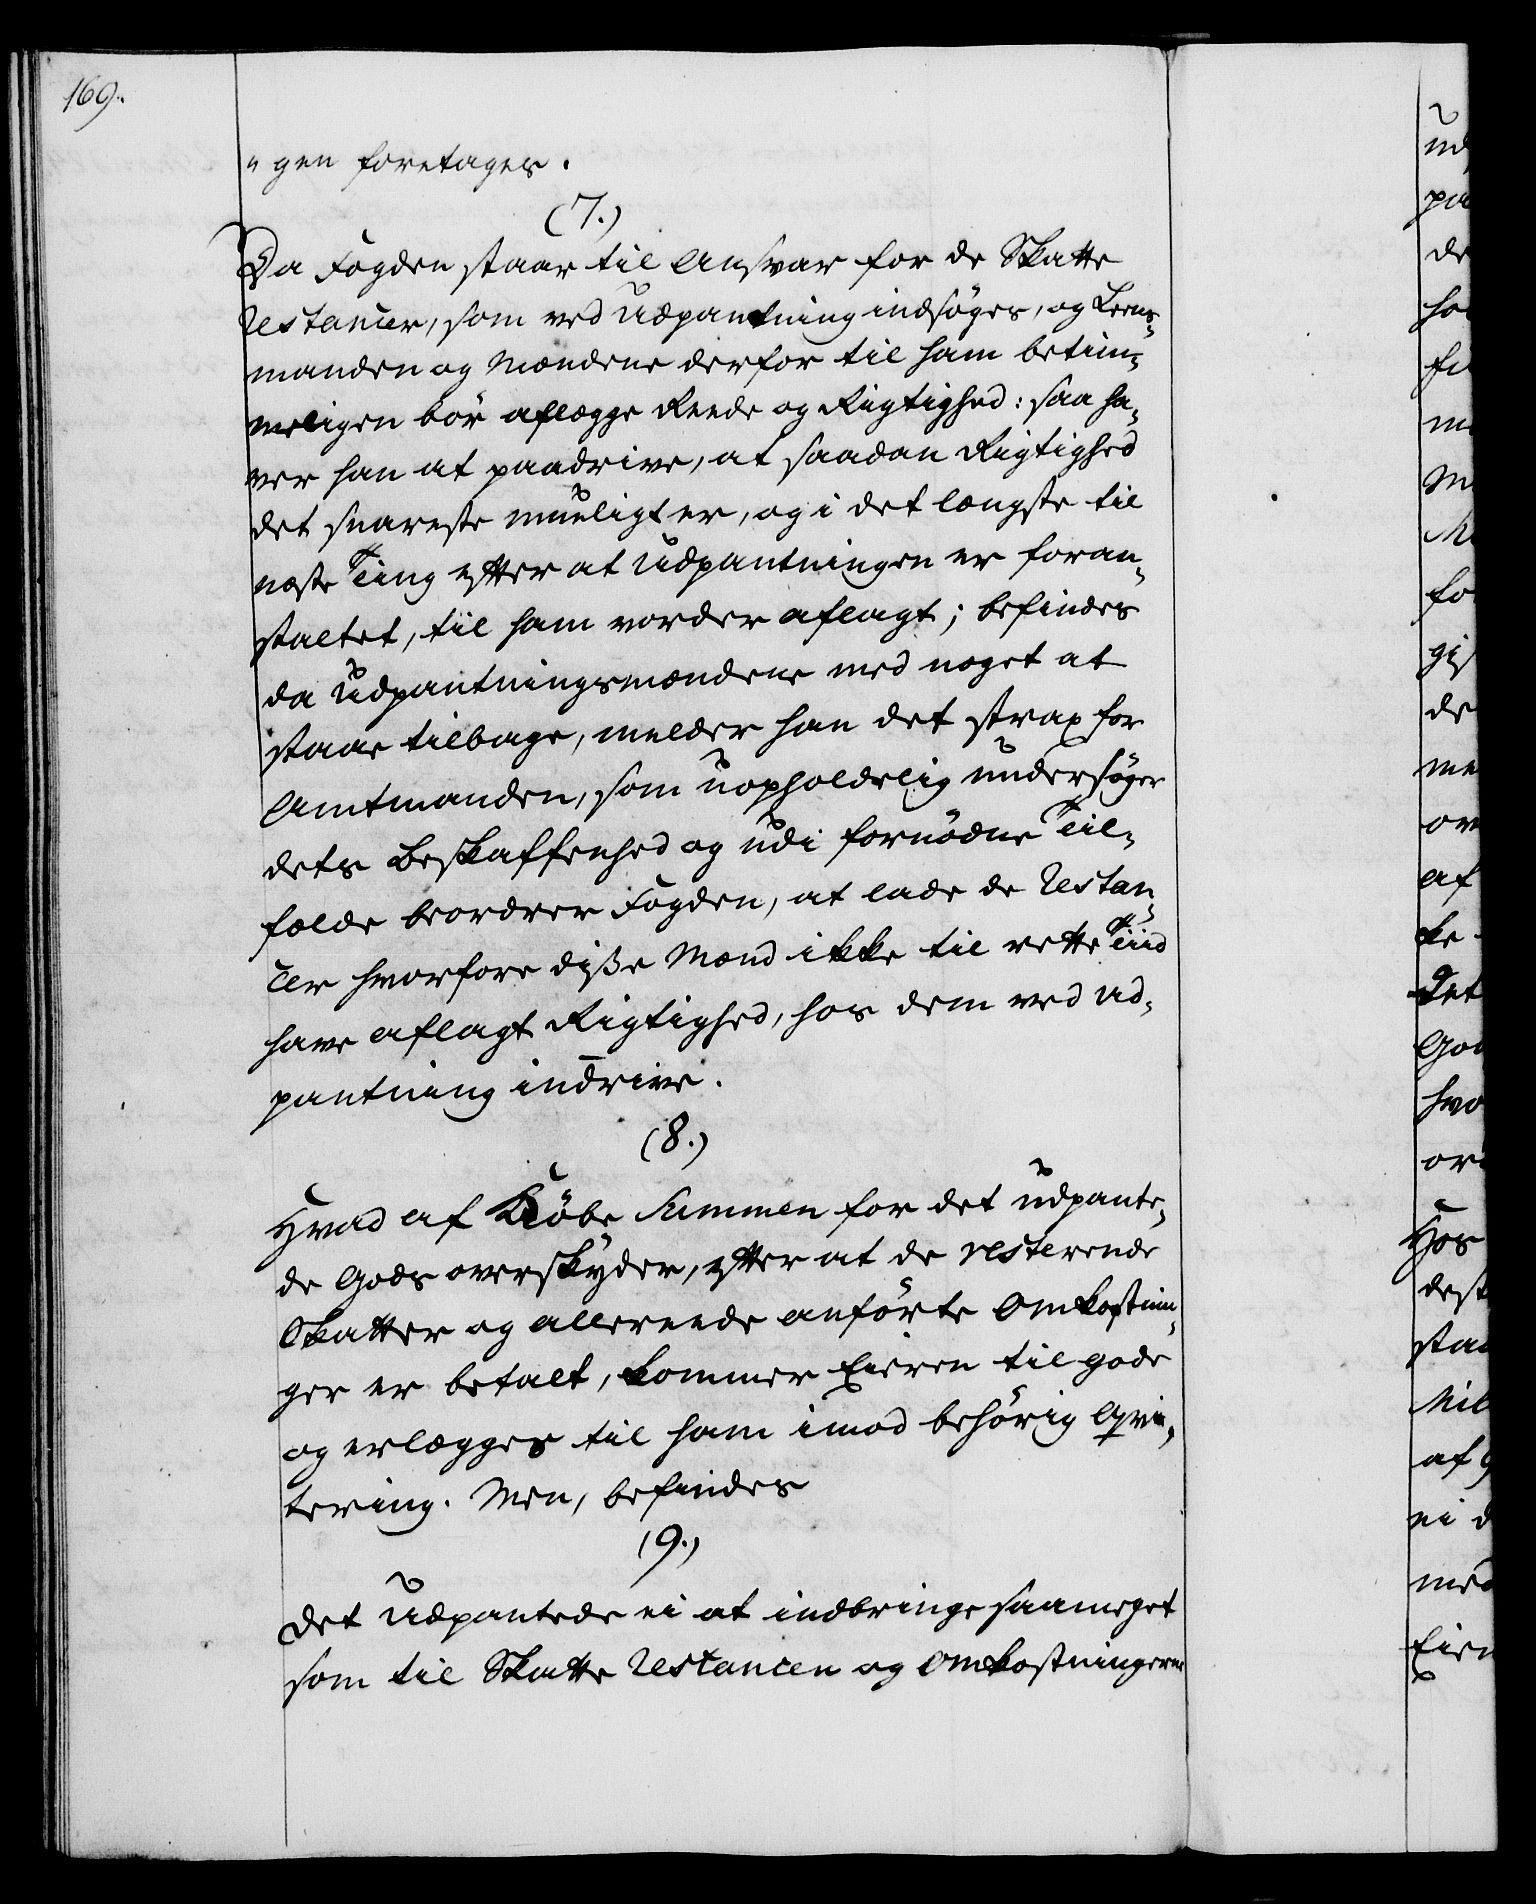 169.
" gen foretages.
(7.)
Da Fogden staar til Ansvar for de Skatte
Restancer, som ved Udpantning indsøges, og Leens-
manden og Mændene derfor til ham betim-
meligen bør aflægge Reede og Rigtighed: saa ha-
ver han at paadrive, at saadan Rigtighed
det snareste mueligt er, og i det længste til
næste Ting efter at Udpantningen er foran-
staltet, til ham vorder aflagt; befindes
da Udpantningsmændene med noget at
staae tilbage, melder han det strax for
Amtmanden, som uopholdelig undersøger
dets Beskaffenhed og udi fornødne Til-
fælde beordrer Fogden, at lade de Restan-
cer hvorfore diße Mænd ikke til rette Tiid
have aflagt Rigtighed, hos dem ved Ud-
pantning inddrive.
(8.)
Hvad af Kiøbe Summen for det udpante-
de Gods overskyder, efter at de resterende
Skatter og allereede anførte Omkostnin-
ger er betalt, kommer Eieren til gode
og erlægges til ham imod behørig Qvi-
tering. Men, befindes
(9.)
det Udpantede ei at indbringe saameget
som til Skatte Restancen og Omkostningerne
ud
pa
de
ho
fo
gi
de
me
ov
af
ke
Det
God
hvo
or
Hos
dest
sta
Mil
af
ei d
med
Eier